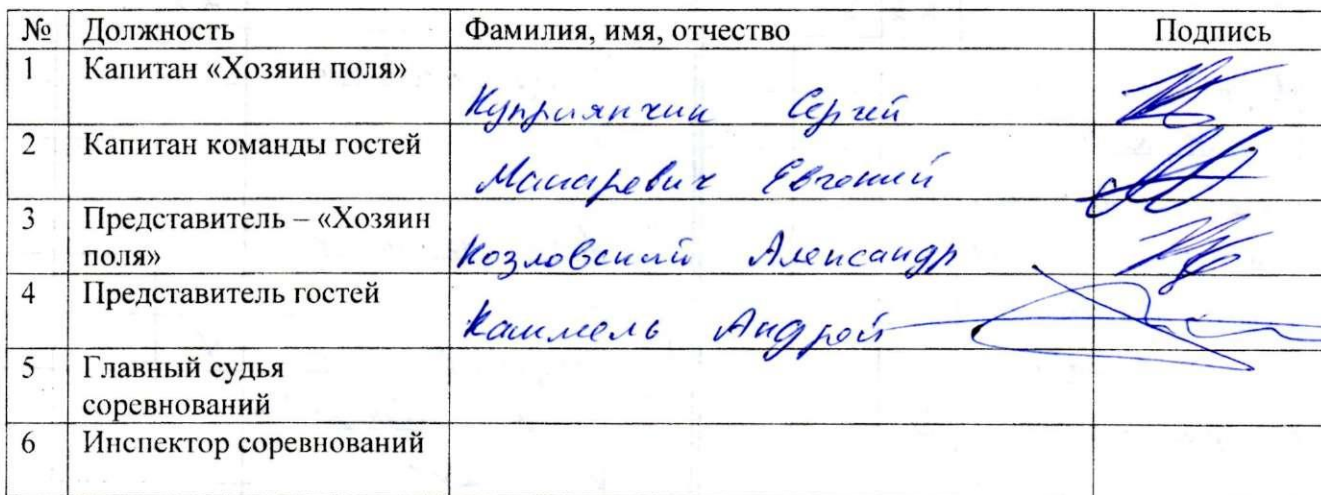 № Должность Фамилия, имя, отчество Подпись
1 Капитан «Хозяин поля» Куприянчик Сергей
2 Капитан команды гостей Макаревич Евгений
3 Представитель – «Хозяин
поля» Козловский Александр
4 Представитель гостей Каммель Андрей
5 Главный судья
соревнований
6 Инспектор соревнований